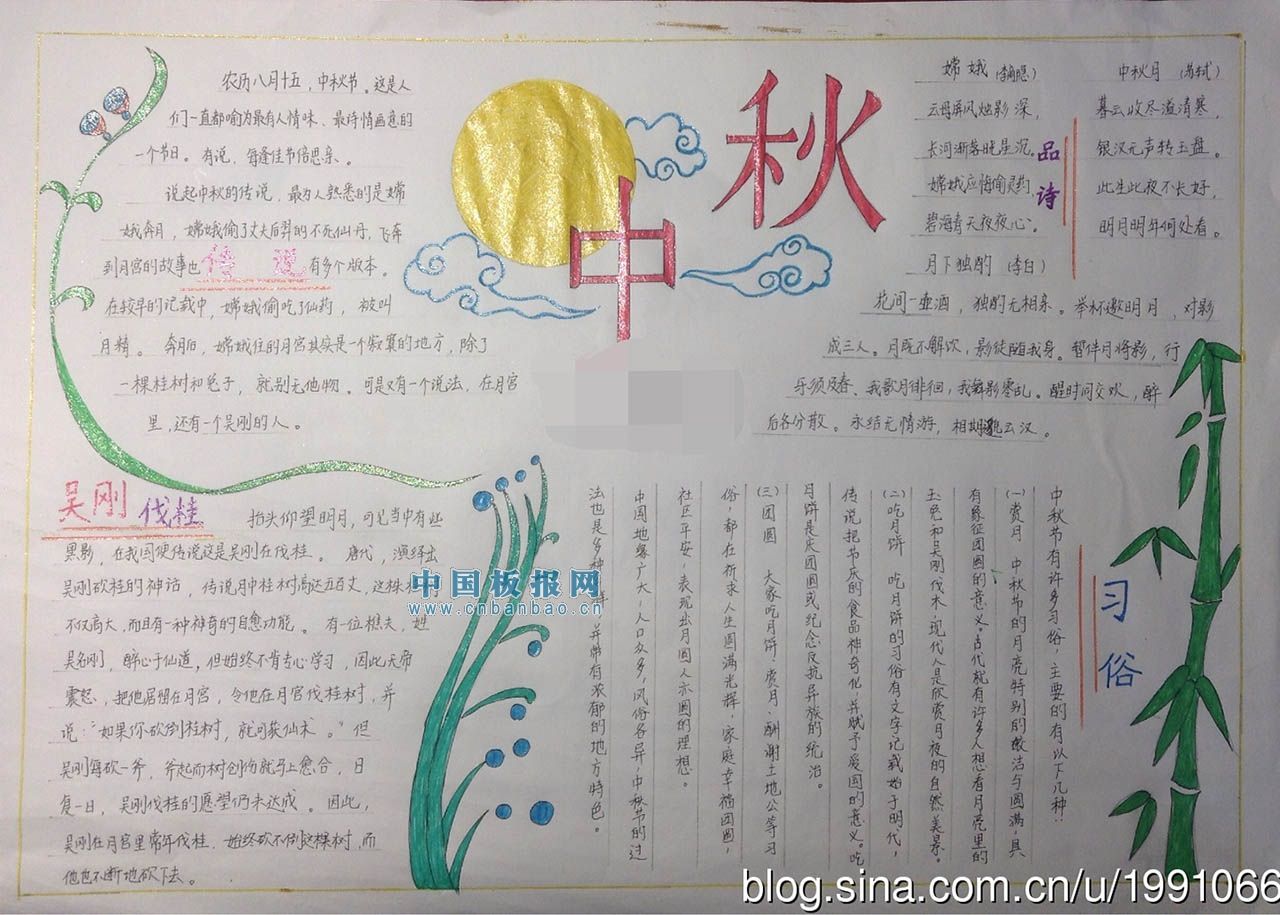 农历八月十五，中秋节。这是人
们一直都喻为最有人情味、最诗情画意的
一个节日。有说，每逢佳节倍思亲。
说起中秋的传说，最为人熟悉的是嫦
娥奔月，嫦娥偷了丈夫后羿的不死仙丹，飞奔
到月宫的故事也
传说
有多个版本。
在较早的记载中，嫦娥偷吃了仙药，被叫
月精。奔月后，嫦娥住的月宫其实是个寂寞的地方，除了
一棵桂树和兔子，就别无他物。可是又有一个说法，在月宫
里，还有一个吴刚的人。
中秋
嫦娥（李商隐）
云母屏风烛影深，
长河渐落晓星沉。
嫦娥应悔偷灵药，
碧海青天夜夜心。
品诗
中秋月（苏轼）
暮云收尽溢清寒，
银汉无声转玉盘。
此生此夜不长好，
明月明年何处看。
月下独酌（李白）
花间一壶酒，独酌无相亲。举杯邀明月，对影
成三人。月既不解饮，影徒随我身。暂伴月将影，行
乐须及春。我歌月徘徊，我舞影零乱。醒时同交欢，醉
后各分散。永结无情游，相期邈云汉。
吴刚伐桂
抬头仰望明月，可见当中有些
黑影，在我国便传说这是吴刚在伐桂。唐代，演绎出
吴刚砍桂的神话，传说月中桂树高达五百丈，这株
不仅高大，而且有一种神奇的自愈功能。有一位樵夫，姓
吴名刚，醉心于仙道，但始终不肯专心学习，因此天帝
震怒，把他居留在月宫，令他在月宫伐桂树，并
说：“如果你砍倒桂树，就可获仙术。”但
吴刚每砍一斧，斧起而树创伤就马上愈合，日
复一日，吴刚伐桂的愿望仍未达成。因此，
吴刚在月宫里常年伐桂，始终砍不倒这棵树，而
他也不断地砍下去。
中国板报网
www.cnbanbao.cn
习俗
中秋节有许多习俗，主要的有以下几种：
（一）赏月 中秋节的月亮特别的皎洁与圆满，具
有象征团圆的意义。古代就有许多人想看月亮里的
玉兔和吴刚伐木，现代人是欣赏月夜的自然美景。
（二）吃月饼 吃月饼的习俗有文字记载始于明代，
传说把节庆的食品神奇化，并赋予爱国的意义。吃
月饼是庆团圆或纪念反抗异族的统治。
（三）团圆 大家吃月饼、赏月、酬谢土地公等习
俗，都在祈求人生圆满光辉，家庭幸福团圆，
社区平安，表现出月圆人亦圆的理想。
中国地缘广大，人口众多，风俗各异，中秋节的过
法也是多种 样，并带有浓郁的地方特色。
blog.sina.com.cn/u/1991066